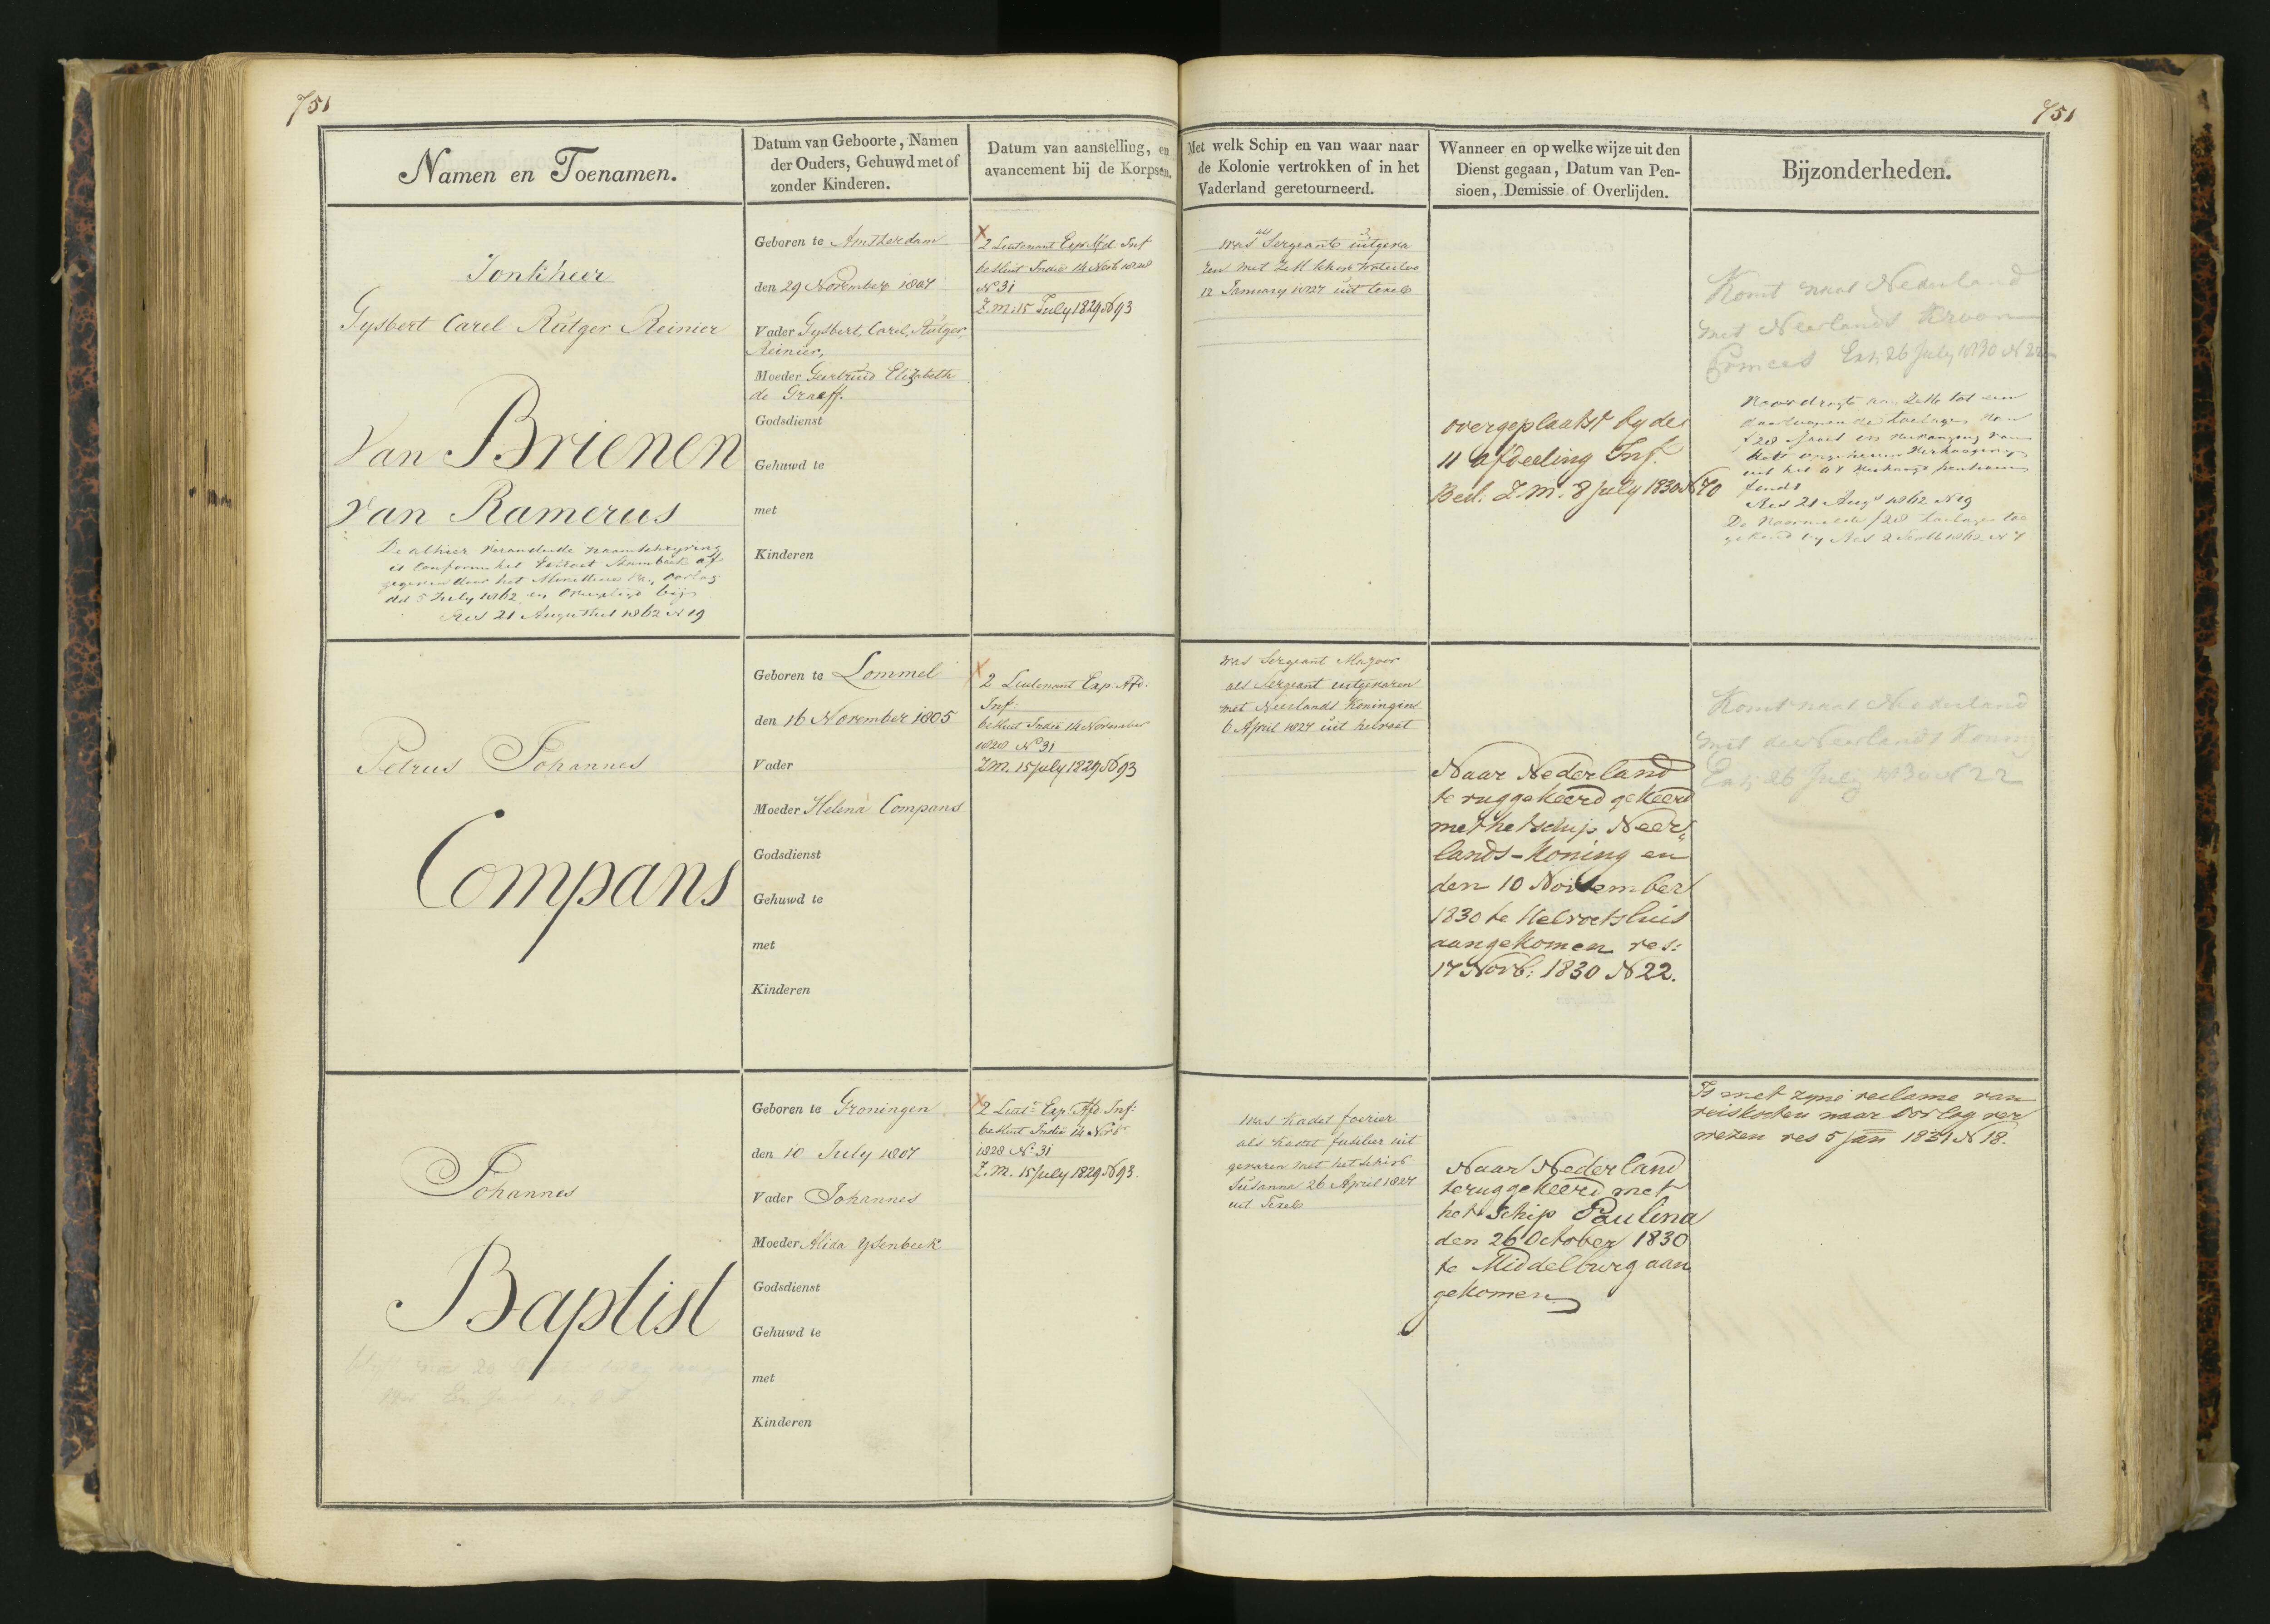 751
751
Namen en Toenamen.
Datum van Geboorte, Namen
der Ouders, Gehuwd met of
zonder Kinderen.
Datum van aanstelling, en
avancement bij de Korpsen.
Met welk Schip en van waar naar
de Kolonie vertrokken of in het
Vaderland geretourneerd.
Wanneer en op welke wijze uit den
Dienst gegaan, Datum van Pen-
sioen, Demissie of Overlijden.
Bijzonderheden.
Jonkheer
Gysbert Carel Rutger Reinier
van Brienen
van Ramerus
De alhier veranderde naamschryving
is conform het Extract Stamboek af
gegeven door het Ministerie v. Oorlog
dd 5 July 1862 en bij
Res 21 Augustus 1862 N 19
Geboren te Amsterdam
den 29 November 1807
Vader Gysbert, Carel, Rutger,
Reinier,
Moeder Geertruid Elizabeth
de Graeff.
Godsdienst
Gehuwd te
met
Kinderen
2 Lieutenant Exp. Afd. Inf
besluit Indie 14 Novb 1828
No 31
Z.M. 15 July 1829 N 93
was als Sergeant uitgeva
ren met Z.M. schip Waterloo
12 January 1827 uit texel
overgeplaatst by de
11 afdeeling Inf.
Besl. Z.M. 8 July 1830 N 70
Komt naar Nederland
met Neerlands Kroon
Princes Exh 26 July 1830 N 22
Voordragte aan Z.M. tot een
toelage van
f 28 's jaars en vervanging van
verhooging
uit het pensioen
fonds
Res 21 Augs 1862 N 19
De voormelde f 28 toelage toe
gekend by Res 2 Septb 1862 N 7
Petrus Johannes
Compans
Geboren te Lommel
den 16 November 1805
Vader
Moeder Helena Compans
Godsdienst
Gehuwd te
met
Kinderen
2 Lieutenant Exp: Afd:
Inf:
besluit Indie 14 November
1828 No 31
Z.M. 15 july 1829 N 93
was Sergeant Majoor
als Sergeant uitgevaren
met Neerlands Koningin
6 April 1827 uit helvoet
Naar Nederland
teruggekeerd gekeerd
met het schip Neer„
lands-Koning en
den 10 November
1830 te Helvoetsluis
aangekomen res:
17 Novb: 1830 N 22.
Komt naar Nederland
met de Neerlands Koning
Exh 26 July 1830 N 22
Johannes
Baptist
Geboren te Groningen
den 10 July 1807
Vader Johannes
Moeder Alida Ysenbeek
Godsdienst
Gehuwd te
met
Kinderen
2 Luit: Exp. Afd. Inf:
besluit Indie 14 Novbr
1828 No 31
Z.M. 15 july 1829 N 93.
was Kadet foerier
als Kadet fuselier uit
gevaren met het schip
Susanna 26 April 1827
uit Texel
Naar Nederland
teruggekeerd met
het schip Paulina
den 26 October 1830
te Middelburg aan
gekomen
Is met zyne reclame van
reiskosten naar Oorlog ver
wezen res 5 jan 1831 N 18.